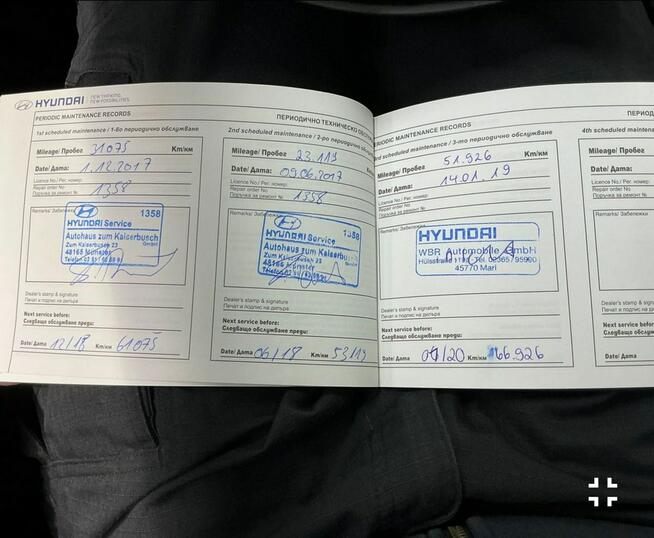 HYUNDAI NEW THINKING. NEW POSSIBILITIES.
PERIODIC MAINTENANCE RECORDS
1st scheduled maintenance / 1-во периодично обслужване
Mileage/ Пробег 31075 Km/км
Date/ Дата: 1.12.2017
Licence No./ Рег. номер:
Repair order No
Поръчка за ремонт №: 1358
Remarks/ Забележки
HYUNDAI Service 1358
Autohaus zum Kaiserbusch
GmbH
Zum Kaiserbusch 23
48165 Münster
Dealer's stamp & signature
Печат и подпис на дилъра
Next service before:
Следващо обслужване преди:
Date/ Дата 12/18 Km/км 61075
ПЕРИОДИЧНО ТЕХНИЧЕСКО
2nd scheduled maintenance / 2-ро периодично обслужване
Mileage/ Пробег 23.119 Km/км
Date/ Дата: 09.06.2017
Licence No./ Рег. номер:
Repair order No
Поръчка за ремонт №: 1358
Remarks/ Забележки
HYUNDAI Service 1358
Autohaus zum Kaiserbusch
GmbH
Zum Kaiserbusch 23
Münster
Dealer's stamp & signature
Печат и подпис на дилъра
Next service before:
Следващо обслужване преди:
Date/ Дата 06/18 Km/км 53119
PERIODIC MAINTENANCE RECORDS
3rd scheduled maintenance / 3-то периодично обслужване
Mileage/ Пробег 51.926 Km/км
Date/ Дата: 14.01.19
Licence No./ Рег. номер:
Repair order No
Поръчка за ремонт №:
Remarks/ Забележки
HYUNDAI
WBR Automobile GmbH
45770 Marl
Dealer's stamp & signature
Печат и подпис на дилъра
Next service before:
Следващо обслужване преди:
Date/ Дата 01/20 Km/км 66.926
4th scheduled maintenance
Mileage/ Пробег
Date/ Дата:
Licence No./ Рег. номер:
Repair order No
Поръчка за ремонт №:
Remarks/ Забележки
Dealer's stamp & signature
Печат и подпис на дилъра
Next service before:
Следващо обслужване преди:
Date/ Дата